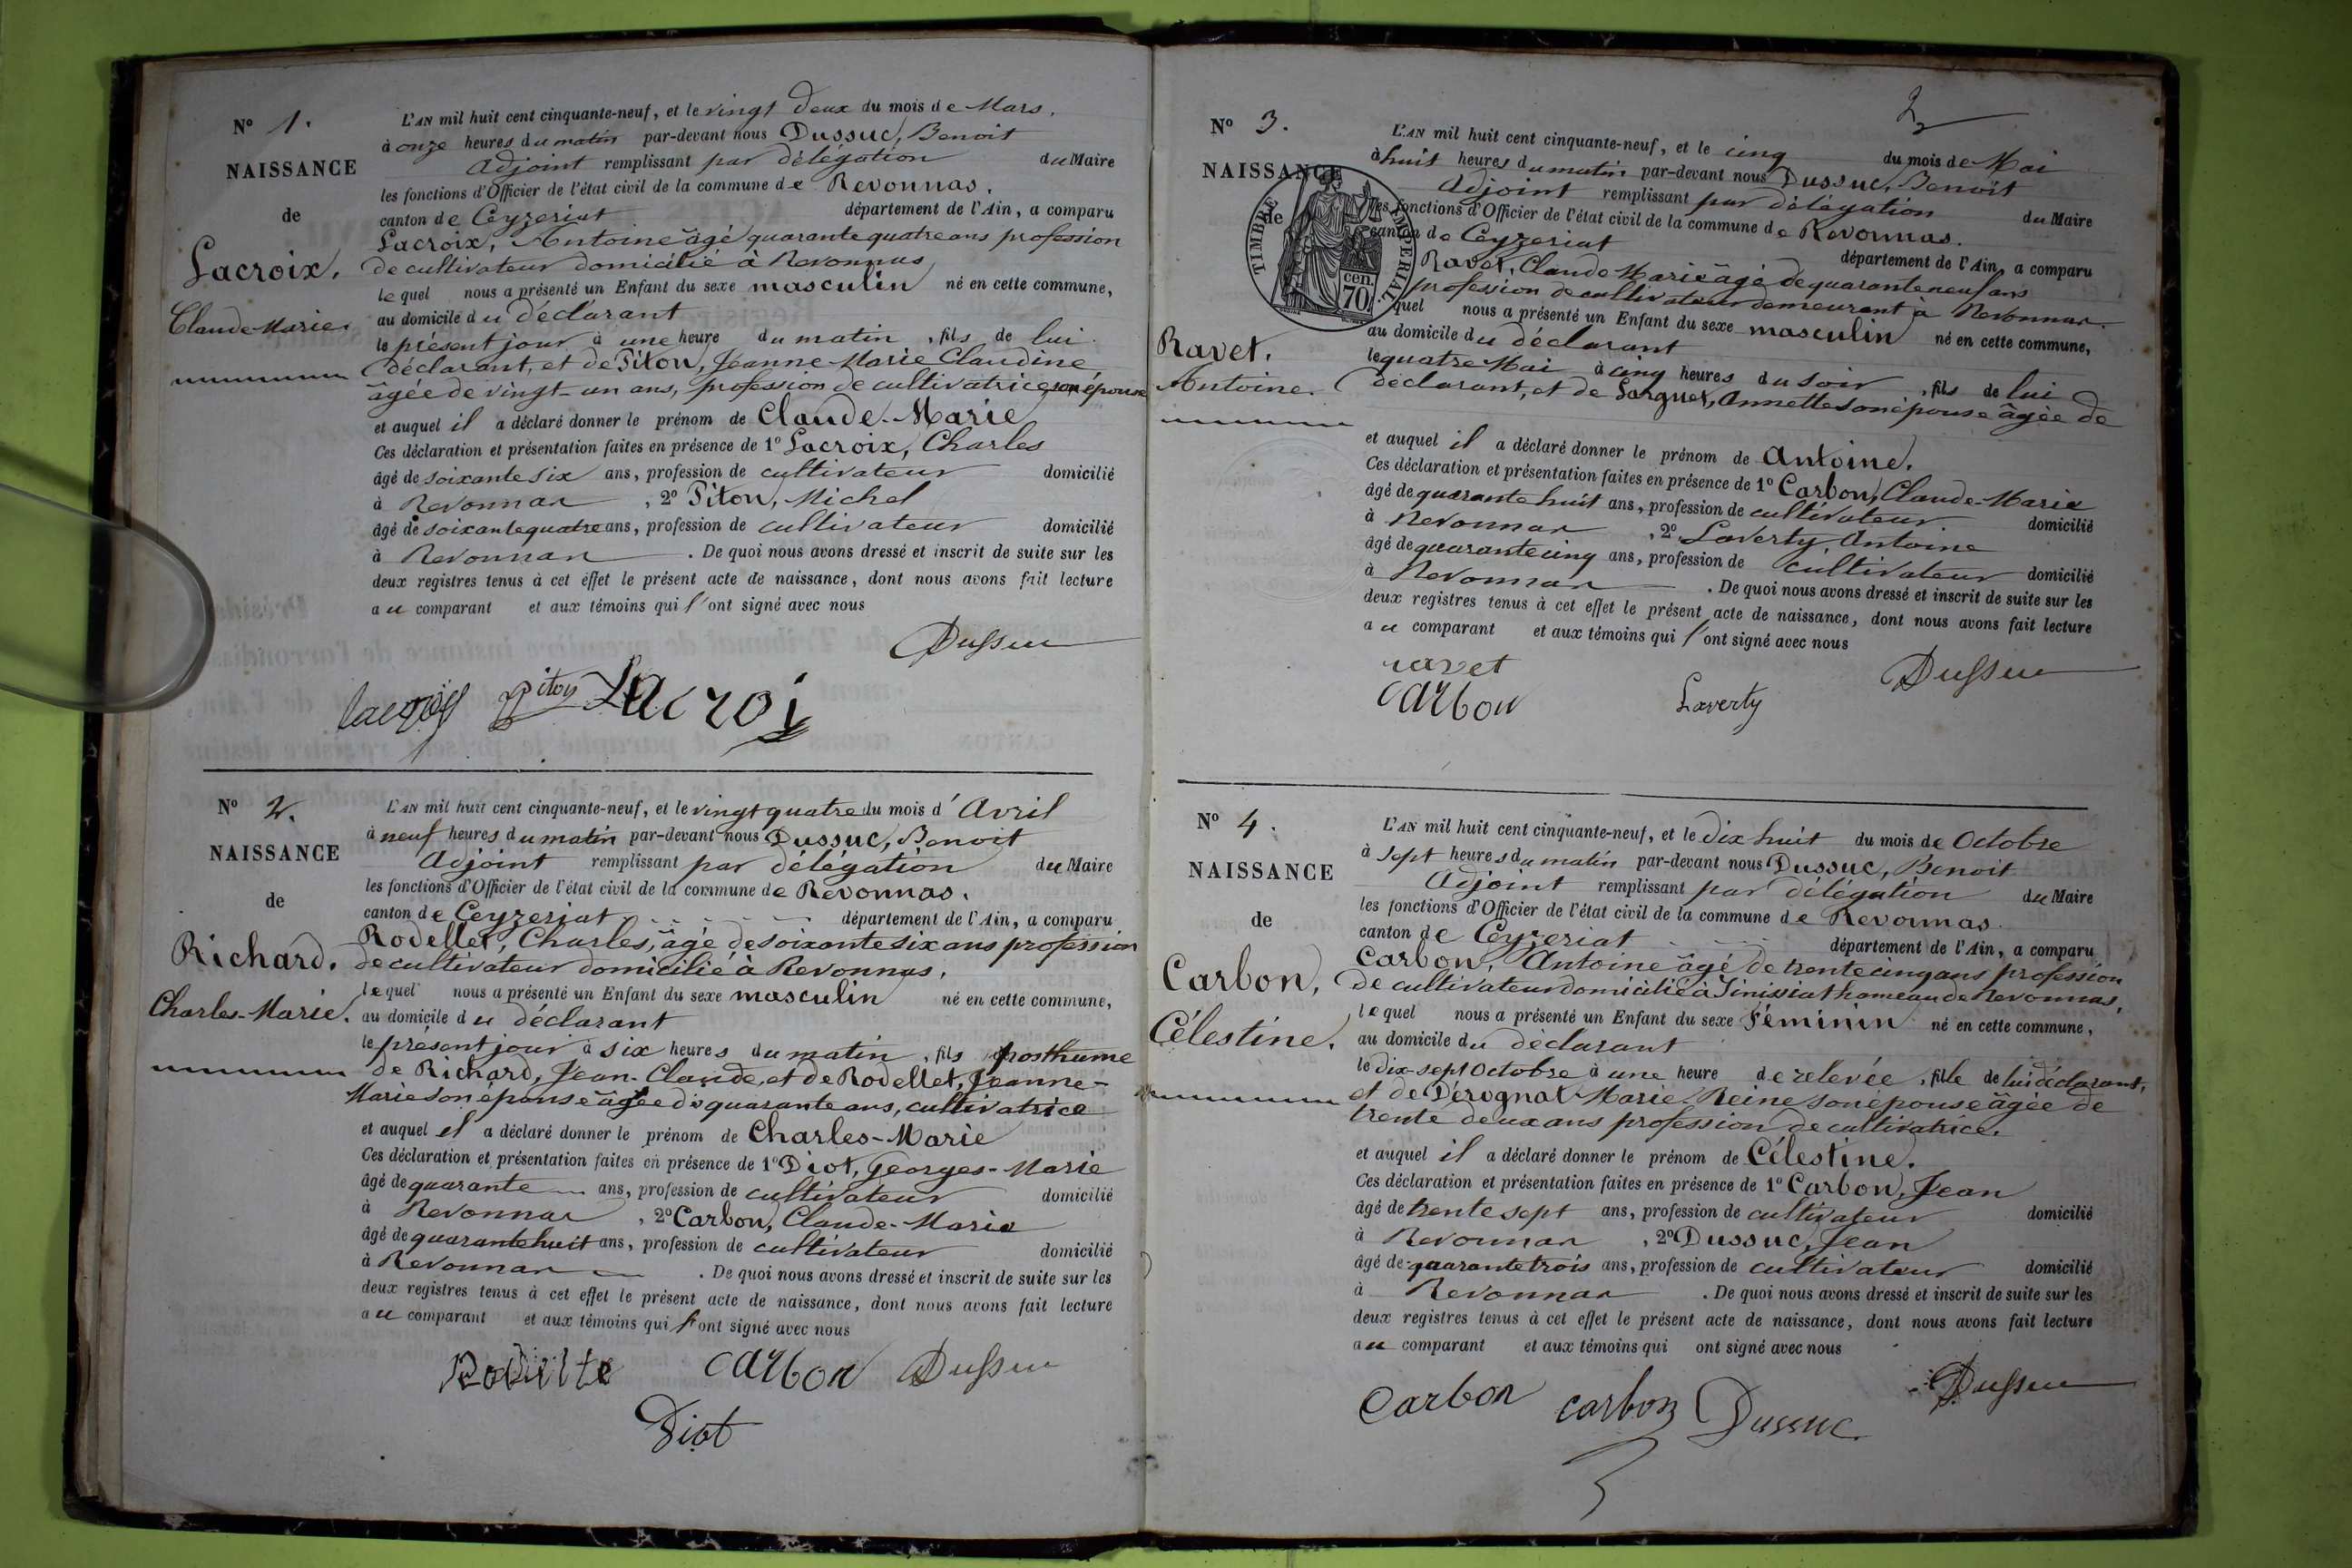 N° 1.
NAISSANCE
de
Lacroix,
Claude-Marie.
L'AN mil huit cent cinquante-neuf, et le vingt deux du mois de Mars,
à onze heures du matin par-devant nous Dussuc, Benoit
Adjoint remplissant par délégation du Maire
les fonctions d'Officier de l'état civil de la commune de Revonnas,
canton de Ceyzeriat département de l'Ain, a comparu
Lacroix, Antoine âgé quarante quatre ans profession
de cultivateur domicilié à Revonnas
lequel nous a présenté un Enfant du sexe masculin né en cette commune,
au domicile du déclarant
le présent jour à une heure du matin, fils de lui
déclarant, et de Piton, Jeanne-Marie Claudine
âgée de vingt-un ans, profession de cultivatrice son épouse
et auquel il a déclaré donner le prénom de Claude-Marie
Ces déclaration et présentation faites en présence de 1° Lacroix, Charles
âgé de soixante six ans, profession de cultivateur domicilié
à Revonnas, 2° Piton, Michel
âgé de soixante quatre ans, profession de cultivateur domicilié
à Revonnas. De quoi nous avons dressé et inscrit de suite sur les
deux registres tenus à cet effet le présent acte de naissance, dont nous avons fait lecture
au comparant et aux témoins qui l'ont signé avec nous
Dussuc
lacroix Piton Lacroi
N° 2.
NAISSANCE
de
Richard,
Charles-Marie.
L'AN mil huit cent cinquante-neuf, et le vingt quatre du mois d'Avril
à neuf heures du matin par-devant nous Dussuc, Benoit
Adjoint remplissant par délégation du Maire
les fonctions d'Officier de l'état civil de la commune de Revonnas.
canton de Ceyzeriat département de l'Ain, a comparu
Rodellet, Charles, âgé de soixante six ans profession
de cultivateur domicilié à Revonnas,
lequel nous a présenté un Enfant du sexe masculin né en cette commune,
au domicile du déclarant
le présent jour à six heures du matin, fils posthume
de Richard, Jean-Claude, et de Rodellet, Jeanne-
Marie son épouse âgée de quarante ans, cultivatrice
et auquel il a déclaré donner le prénom de Charles-Marie
Ces déclaration et présentation faites en présence de 1° Diot, Georges-Marie
âgé de quarante ans, profession de cultivateur domicilié
à Revonnas, 2° Carbon, Claude-Marie
âgé de quarante huit ans, profession de cultivateur domicilié
à Revonnas. De quoi nous avons dressé et inscrit de suite sur les
deux registres tenus à cet effet le présent acte de naissance, dont nous avons fait lecture
au comparant et aux témoins qui l'ont signé avec nous
carbon Dussuc
Diot
2
N° 3.
NAISSANCE
de
TIMBRE IMPERIAL.
cen.
70
Ravet,
Antoine.
L'AN mil huit cent cinquante-neuf, et le cinq du mois de Mai
à huit heures du matin par-devant nous Dussuc, Benoit
Adjoint remplissant par délégation du Maire
les fonctions d'Officier de l'état civil de la commune de Revonnas.
canton de Ceyzeriat département de l'Ain, a comparu
Ravet, Claude Marie âgé de quarante neuf ans
profession de cultivateur demeurant à Revonnas.
quel nous a présenté un Enfant du sexe masculin né en cette commune,
au domicile du déclarant
le quatre Mai à cinq heures du soir, fils de lui
déclarant, et de Larguet, Annette son épouse âgée de
et auquel il a déclaré donner le prénom de Antoine.
Ces déclaration et présentation faites en présence de 1° Carbon, Claude-Marie
âgé de quarante huit ans, profession de cultivateur. domicilié
à Revonnas, 2° Laverty, Antoine
âgé de quarante cinq ans, profession de cultivateur domicilié
à Revonnas. De quoi nous avons dressé et inscrit de suite sur les
deux registres tenus à cet effet le présent acte de naissance, dont nous avons fait lecture
au comparant et aux témoins qui l'ont signé avec nous
ravet Dussuc
carbon Laverty
N° 4.
NAISSANCE
de
Carbon,
Célestine.
L'AN mil huit cent cinquante-neuf, et le dix huit du mois de Octobre
à sept heures du matin par-devant nous Dussuc, Benoit
Adjoint remplissant par délégation du Maire
les fonctions d'Officier de l'état civil de la commune de Revonnas
canton de Ceyzeriat département de l'Ain, a comparu
Carbon, Antoine âgé de trente cinq ans profession
de cultivateur domicilié à Sinissiat hameau de Revonnas,
lequel nous a présenté un Enfant du sexe Féminin né en cette commune,
au domicile du déclarant
le dix-sept Octobre à une heure de relevée, fille de lui déclarant,
et de Dérognat Marie Reine son épouse âgée de
trente deux ans profession de cultivatrice.
et auquel il a déclaré donner le prénom de Célestine.
Ces déclaration et présentation faites en présence de 1° Carbon, Jean
âgé de trente sept ans, profession de cultivateur domicilié
à Revonnas, 2° Dussuc, Jean
âgé de quarante trois ans, profession de cultivateur domicilié
à Revonnas. De quoi nous avons dressé et inscrit de suite sur les
deux registres tenus à cet effet le présent acte de naissance, dont nous avons fait lecture
au comparant et aux témoins qui ont signé avec nous
Dussuc
Carbon carbon Dussuc